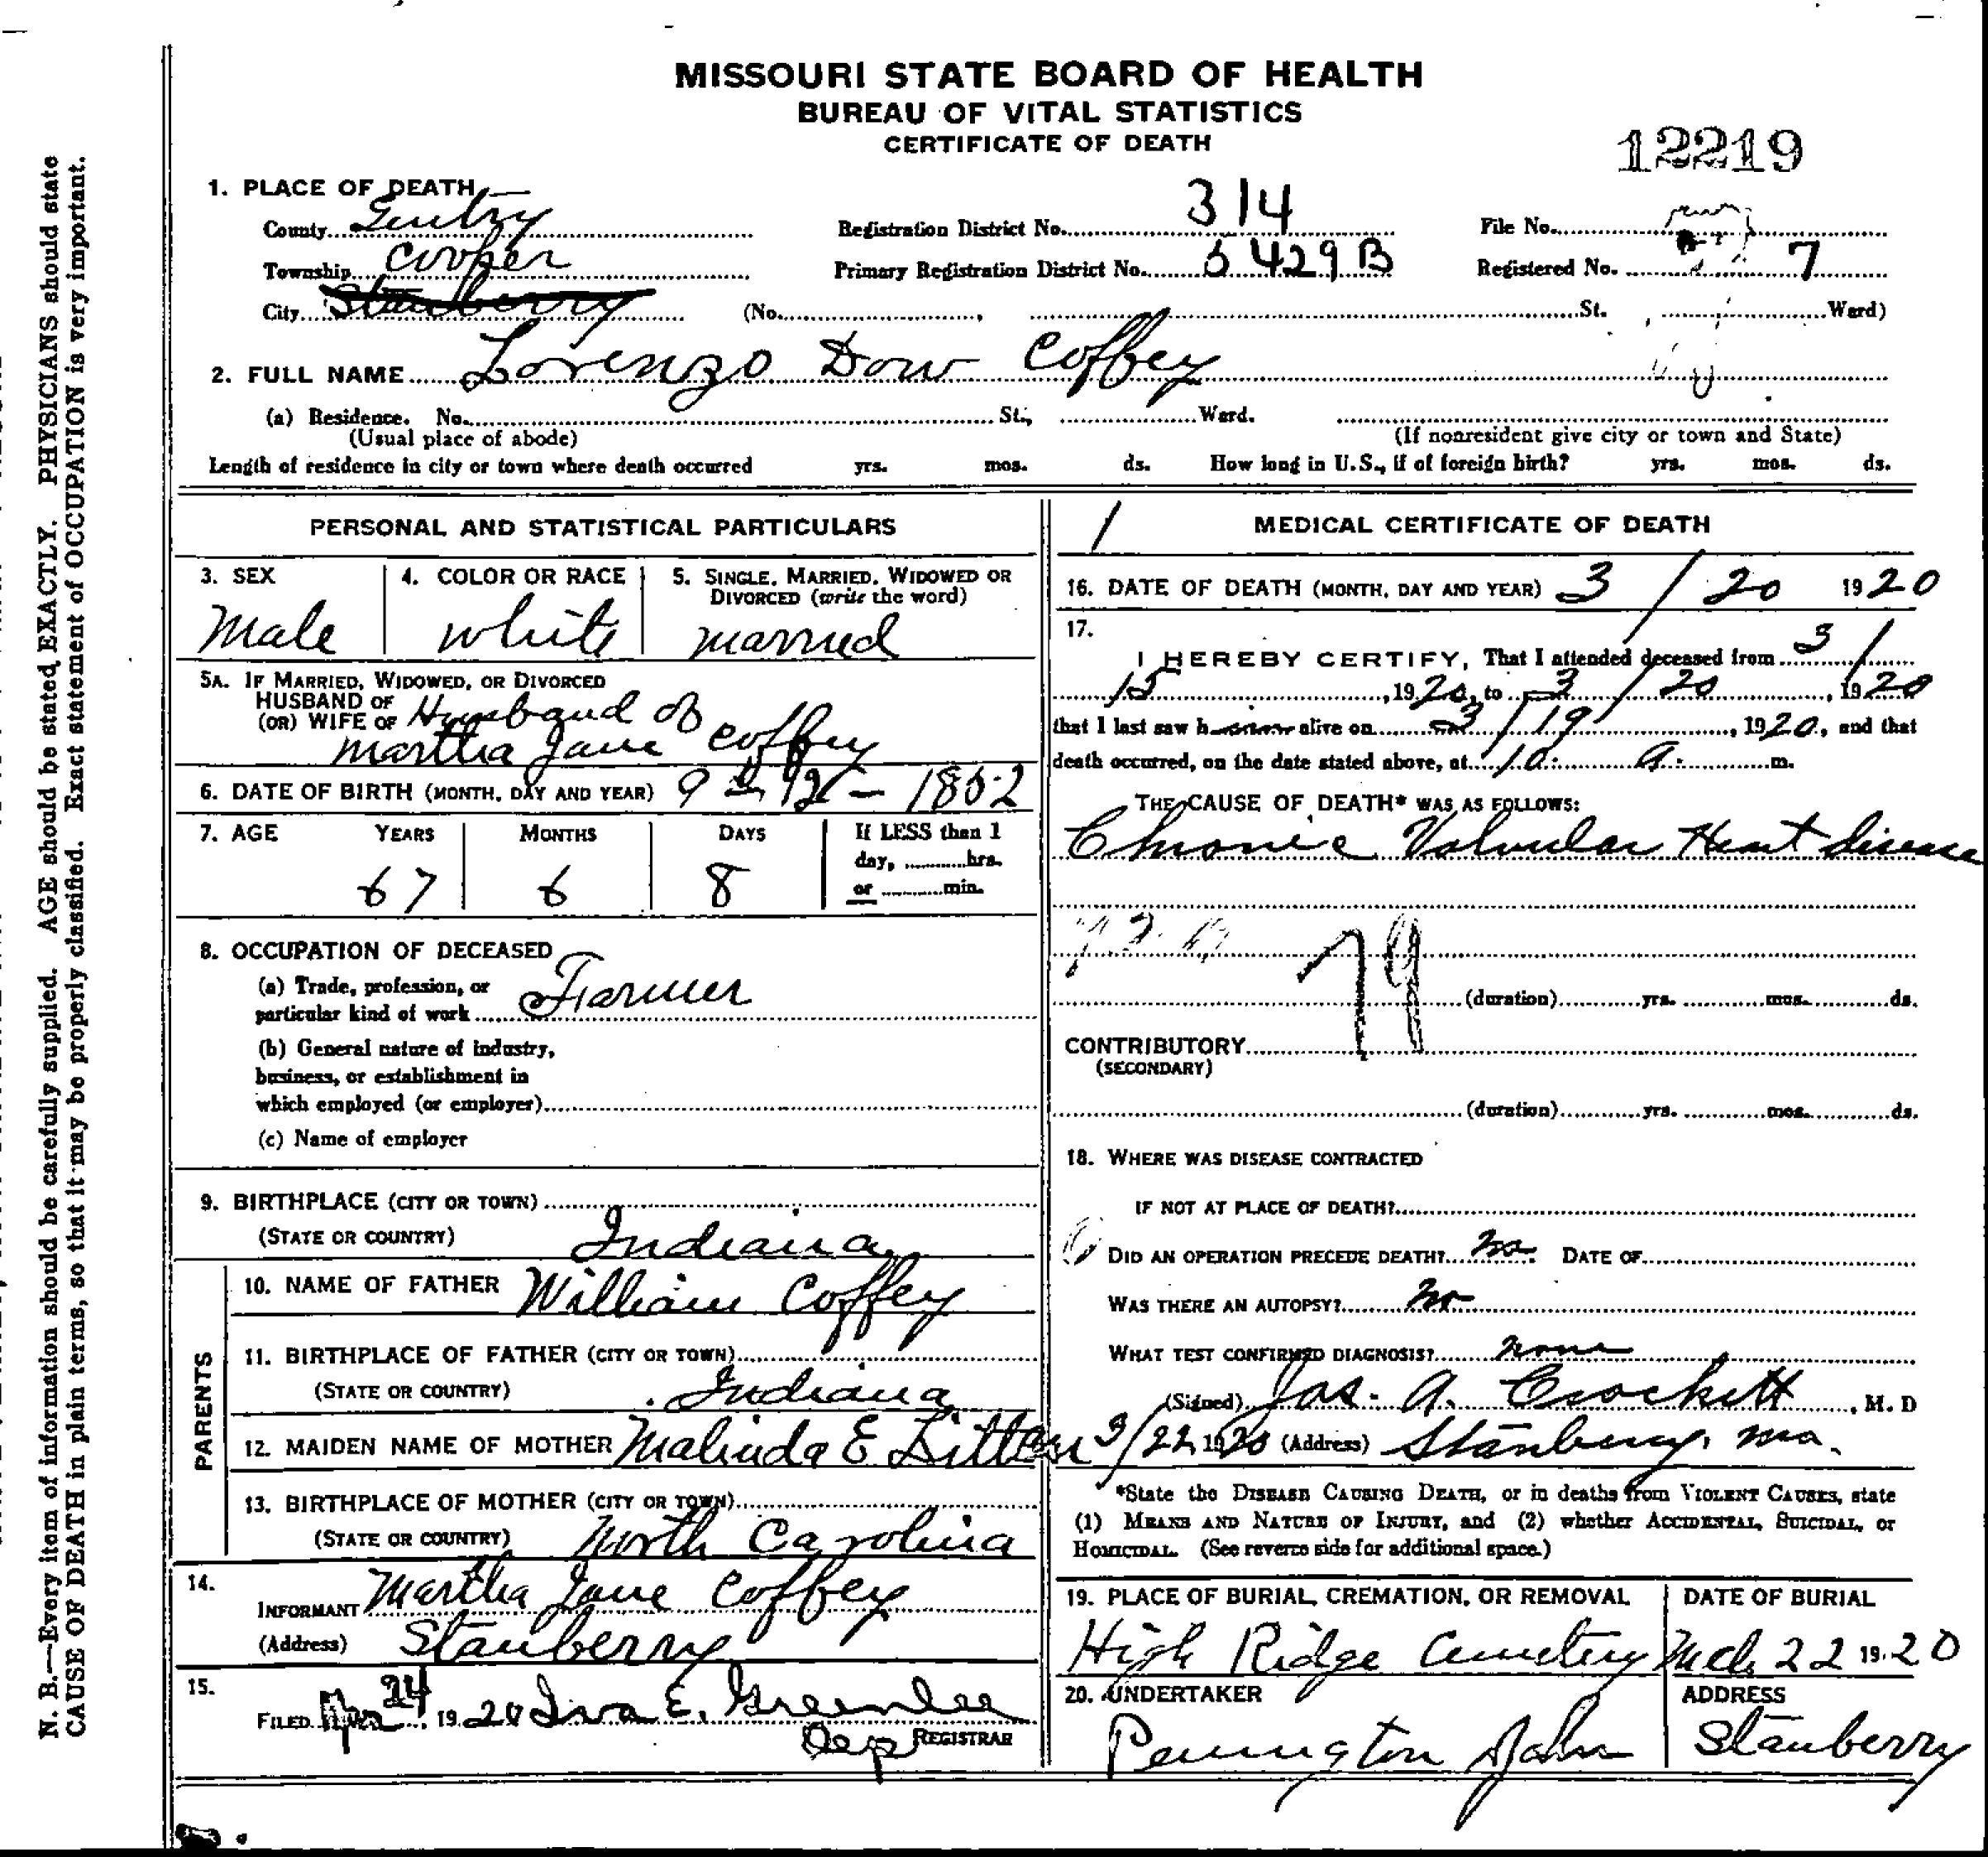 MISSOURI STATE BOARD OF HEALTH
BUREAU OF VITAL STATISTICS
CERTIFICATE OF DEATH
12219
1. PLACE OF DEATH
County Gentry Registration District No. 314 File No.
Township Cooper Primary Registration District No. 5429B Registered No. 7
City Stanberry (No. , St. , Ward)
2. FULL NAME Lorenzo Dow Coffey
(a) Residence. No. St., Ward.
(Usual place of abode) (If nonresident give city or town and State)
Length of residence in city or town where death occurred yrs. mos. ds. How long in U.S., if of foreign birth? yrs. mos. ds.
PERSONAL AND STATISTICAL PARTICULARS
3. SEX 4. COLOR OR RACE 5. SINGLE, MARRIED, WIDOWED OR
DIVORCED (write the word)
Male white married
5A. IF MARRIED, WIDOWED, OR DIVORCED
HUSBAND OF
(OR) WIFE OF Husband of
Martha Jane Coffey
6. DATE OF BIRTH (MONTH, DAY AND YEAR) 9 12 - 1852
7. AGE YEARS MONTHS DAYS If LESS than 1
day, hrs.
or min.
67 6 8
8. OCCUPATION OF DECEASED
(a) Trade, profession, or
particular kind of work Farmer
(b) General nature of industry,
business, or establishment in
which employed (or employer)
(c) Name of employer
9. BIRTHPLACE (CITY OR TOWN)
(STATE OR COUNTRY) Indiana
PARENTS
10. NAME OF FATHER William Coffey
11. BIRTHPLACE OF FATHER (CITY OR TOWN)
(STATE OR COUNTRY) Indiana
12. MAIDEN NAME OF MOTHER Malinda E
13. BIRTHPLACE OF MOTHER (CITY OR TOWN)
(STATE OR COUNTRY) North Carolina
14.
INFORMANT Martha Jane Coffey
(Address) Stanberry
15.
FILED 24, 1920 Iva E. Greenlee
Dep REGISTRAR
1 MEDICAL CERTIFICATE OF DEATH
16. DATE OF DEATH (MONTH, DAY AND YEAR) 3 / 20 1920
17.
I HEREBY CERTIFY, That I attended deceased from 3 /
15, 1920, to 3 / 20, 1920
that I last saw him alive on 3 / 19, 1920, and that
death occurred, on the date stated above, at 10 a. m.
THE CAUSE OF DEATH* WAS AS FOLLOWS:
Chronic Valvular Heart disease
79
(duration) yrs. mos. ds.
CONTRIBUTORY
(SECONDARY)
(duration) yrs. mos. ds.
18. WHERE WAS DISEASE CONTRACTED
IF NOT AT PLACE OF DEATH?
DID AN OPERATION PRECEDE DEATH? no. DATE OF
WAS THERE AN AUTOPSY? no
WHAT TEST CONFIRMED DIAGNOSIS? none
(Signed) Jas. A. Crockett, M. D
3/22 1920 (Address) Stanberry, Mo.
*State the DISEASE CAUSING DEATH, or in deaths from VIOLENT CAUSES, state
(1) MEANS AND NATURE OF INJURY, and (2) whether ACCIDENTAL, SUICIDAL, or
HOMICIDAL. (See reverse side for additional space.)
19. PLACE OF BURIAL, CREMATION, OR REMOVAL DATE OF BURIAL
High Ridge Cemetery Mch 22 1920
20. UNDERTAKER ADDRESS
Pennington Stanberry
N. B.—Every item of information should be carefully supplied. AGE should be stated EXACTLY. PHYSICIANS should state
CAUSE OF DEATH in plain terms, so that it may be properly classified. Exact statement of OCCUPATION is very important.